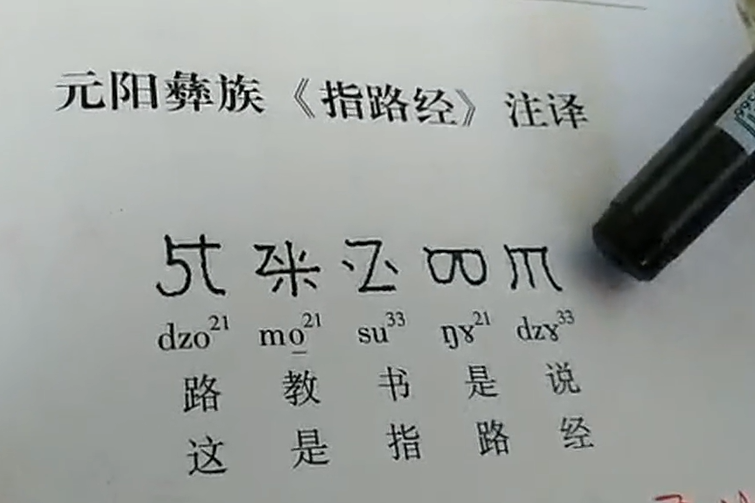 元阳彝族《指路经》注译
dzo²¹ mo̱²¹ su³³ ŋɤ²¹ dzɤ³³
路 教 书 是 说
这 是 指 路 经